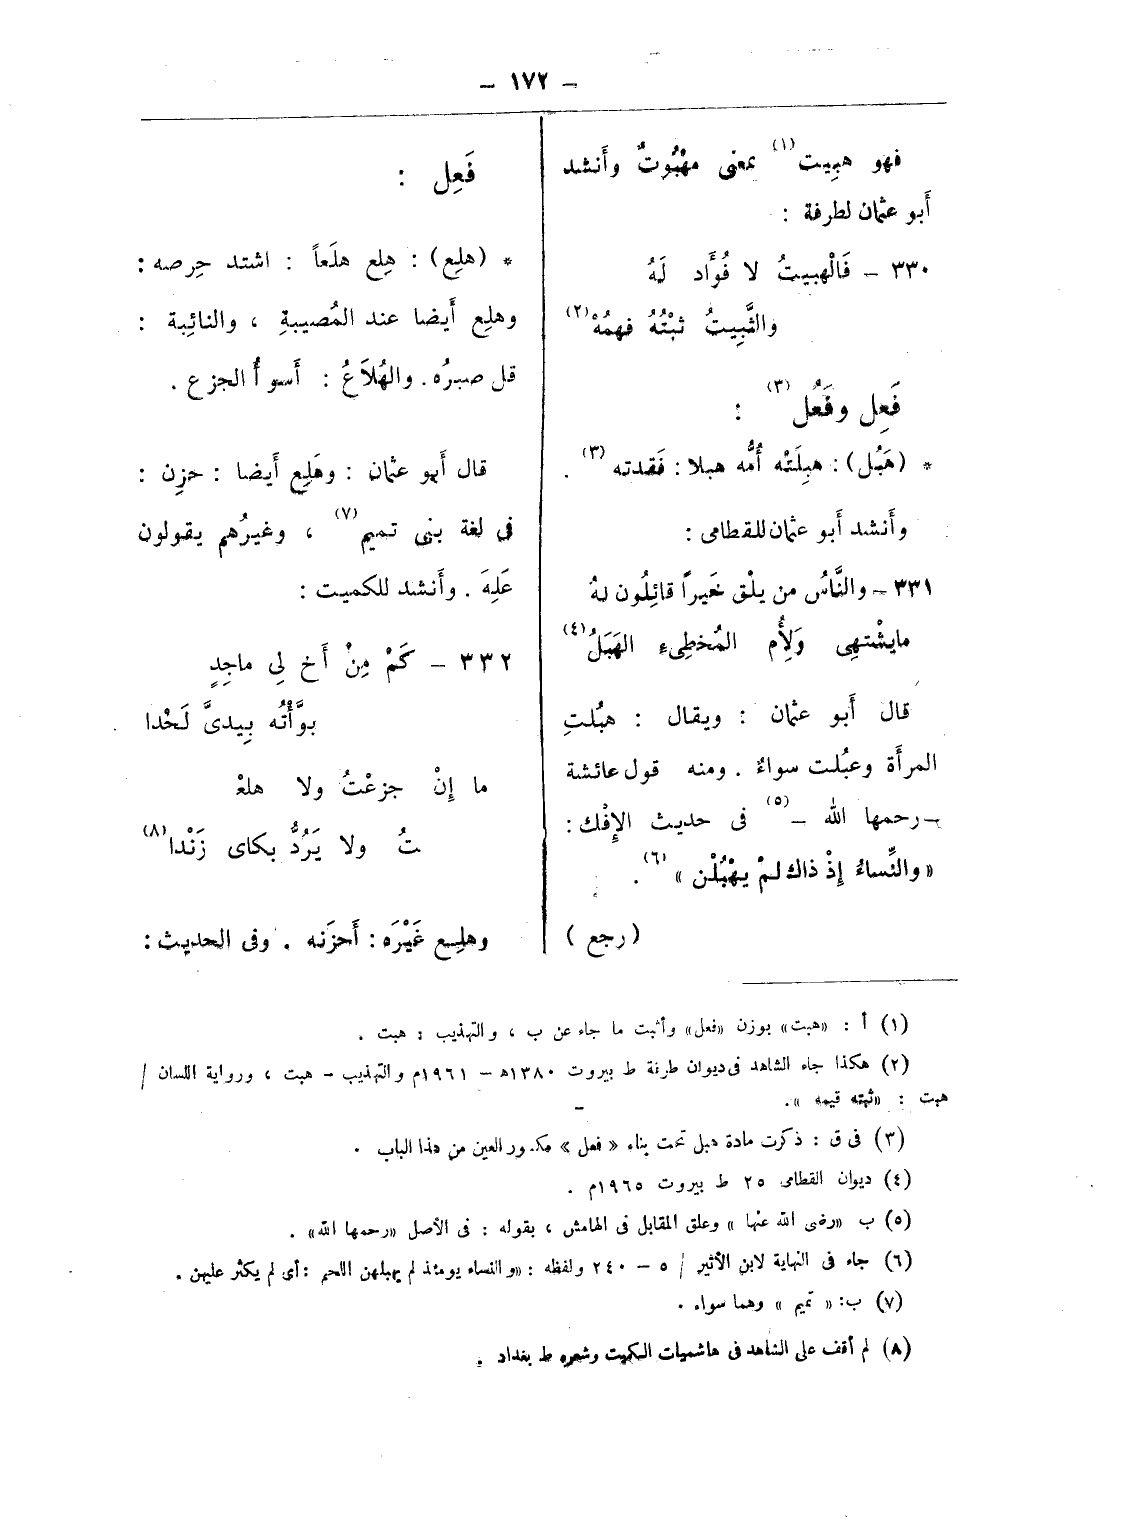 – ١٧٢ –
فهو هبِيت(١) بمعنى مهْبُوتٌ وأَنشد
أَبو عثمان لطرفة :
٣٣٠ – فَالْهبيتُ لا فُؤَاد لَهُ
والثَّبِيتُ ثبْتُهُ فهمُهْ(٢)
فَعِل وفَعُل(٣) :
* (هَبُل) : هبِلَتْه أُمُّه هبلا : فَقدته(٣) .
وأَنشد أَبو عثمان للقطامى :
٣٣١ – والنَّاسُ من يلْق خَيراً قائِلُون لهُ
مايشْتهِى وَلِأُم المُخطِىءِ الهَبَلُ(٤)
قال أَبو عثمان : ويقال : هبُلتِ
المرأَة وعبُلت سواءٌ . ومنه قول عائشة
– رحمها الله –(٥) فى حديث الإِفْك :
« والنِّساءُ إِذْ ذاك لمْ يهْبُلْن »(٦) .
( رجع )
فَعِل :
* (هلِع) : هلِع هلَعاً : اشتد حِرصه :
وهلِع أَيضا عند المُصيبةِ ، والنائِبة :
قل صبرُه . والهُلاَعُ : أَسوأُ الجزع .
قال أَبو عثمان : وهَلِع أَيضا : حزِن :
فى لغة بنى تميم(٧) ، وغيرُهم يقولون
عَلِهَ . وأَنشد للكميت :
٣٣٢ – كَمْ مِنْ أَخ لِى ماجِدٍ
بوَّأْتُه بِيدىَّ لَحْدا
ما إِنْ جزعْتُ ولا هلعْ
تُ ولا يَرُدُّ بكاى زَنْدا(٨)
وهلِع غَيْرَه : أَحزَنه . وفى الحديث :
(١) أ : «هبت» بوزن «فعل» وأثبت ما جاء عن ب ، والتهذيب : هبت .
(٢) هكذا جاء الشاهد فى ديوان طرفة ط بيروت ١٣٨٠ه – ١٩٦١م والتهذيب – هبت ، ورواية اللسان /
هبت : «ثبته قيمه» .
(٣) فى ق : ذكرت مادة هبل تحت بناء « فعل » مكسور العين من هذا الباب .
(٤) ديوان القطامى ٢٥ ط بيروت ١٩٦٥م .
(٥) ب «رضى الله عنها» وعلق المقابل فى الهامش ، بقوله : فى الأصل «رحمها الله» .
(٦) جاء فى النهاية لابن الأثير / ٥ – ٢٤٠ ولفظه : «والنساء يومئذ لم يهبلهن اللحم : أى لم يكثر عليهن .
(٧) ب : « تميم » وهما سواء .
(٨) لم أقف على الشاهد فى هاشميات الكميت وشعره ط بغداد .